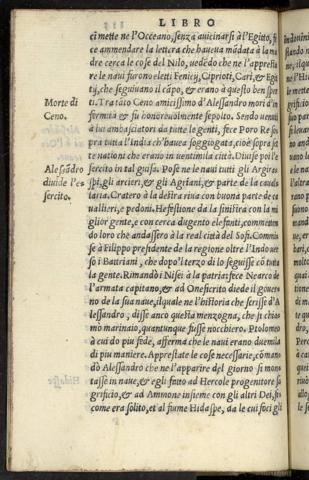 LIBRO
ci mette ne l'Oceano, senza auicinarsi à l'Egitto, fe
ce ammendare la lettera che haueua mãdata à la ma
dre cerca le cose del Nilo, uedẽdo che ne l'appresta
re le naui furono eletti Fenicij, Ciprioti, Cari, & Egi
tij, che seguiuano il cãpo, & erano à questo ben sper
Morte di Ceno.
ti. Tra tãto Ceno amicissimo d'Alessandro morì d'in
fermità & fu honoreuolmente sepolto. Sendo uenuti
à lui ambasciatori da tutte le genti, fece Poro Re so
pra tutta l'India c'haueua soggiogata, cioè sopra set
te nationi che erano in uentimila città. Diuise poi l'e
Alesãdro diuide l'es sercito.
sercito in tal guisa. Pose ne le naui tutti gli Argiro
spi, gli arcieri, & gli Agriani, & parte de la caual
laria. Cratero à la destra riua con buona parte de ca
uallieri, e pedoni. Hefestione da la sinistra con la mi
glior gente, e con cerca dugento elefanti, commetten
do loro che andassero à la real città del Sofi. Commi
se à Filippo presidente de la regione oltre l'Indo uer
so i Battriani, che dopo'l terzo dì lo seguisse cõ tutta
la gente. Rimandò i Nisei à la patria: fece Nearco de
l'armata capitano, & ad Onesicrito diede il gouer
no de la sua naue, il quale ne l'historia che scrisse d'A
lessandro, disse anco questa menzogna, che si chia
mò marinaio, quantunque fusse nocchiero. Ptolomeo
à cui do piu fede, afferma che le naui erano due mila
di piu maniere. Apprestate le cose necessarie, cõman
dò Alessandro che ne l'apparire del giorno si mon
tasse in naue, & egli fatto ad Hercole progenitore sa
grificio, & ad Ammone insieme con gli altri Dei, si
come era solito, et al fiume Hidaspe, da le cui foci gli